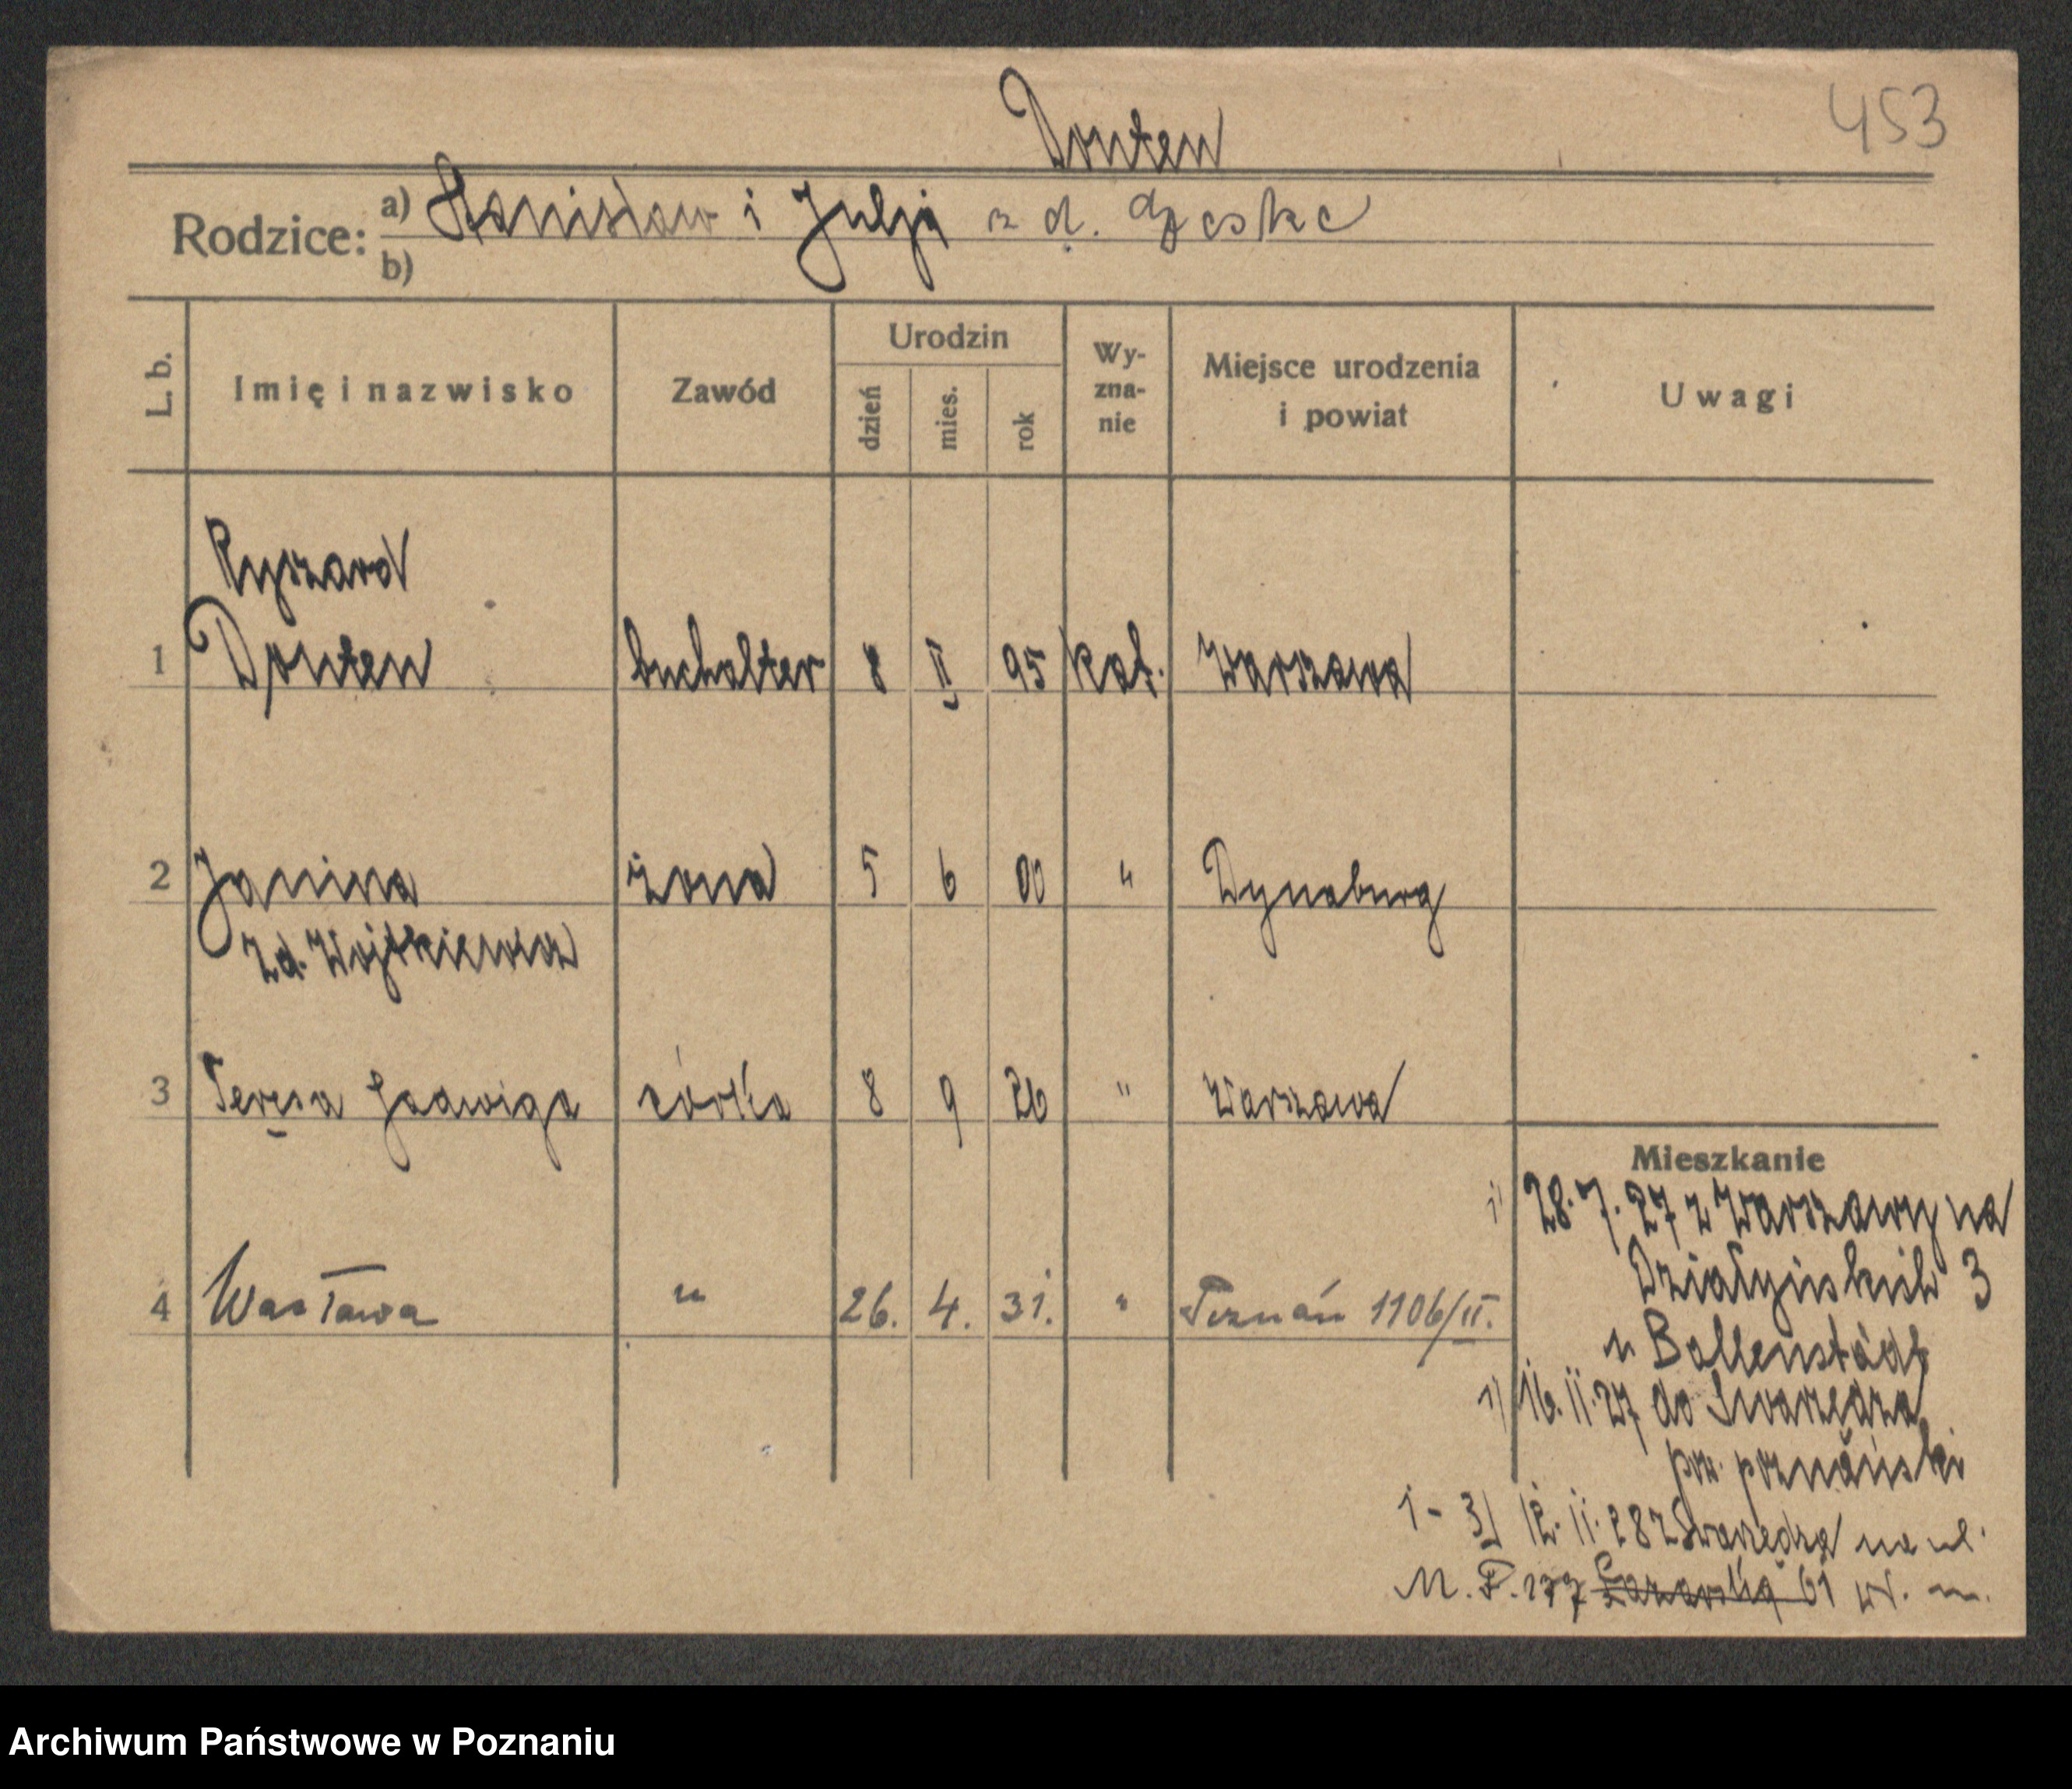 453
Donten
Rodzice: a) Stanisław i Julja z d.
b)
L. b. Imię i nazwisko Zawód Urodzin dzień mies. rok Wy-zna-nie Miejsce urodzenia i powiat Uwagi
Ryszard
1 Donten buchalter 8 II 95 kat. Warszawa
2 Janina żona 5 6 00 " Dynaburg
zd. Wojtkiewicz
3 Teresa Jadwiga córka 8 9 26 " Warszawa
Mieszkanie
1) 28.7.27 z Warszawy na
Działyńskich 3
4 Wacława " 26. 4. 31. " Poznań 1106/II.
u Ballenstädt
1) 16.11.27 do Swarzędza
pow. poznański
1-3) 12.11.28 z Swarzędza na ul.
M. F. 177 61
Archiwum Państwowe w Poznaniu